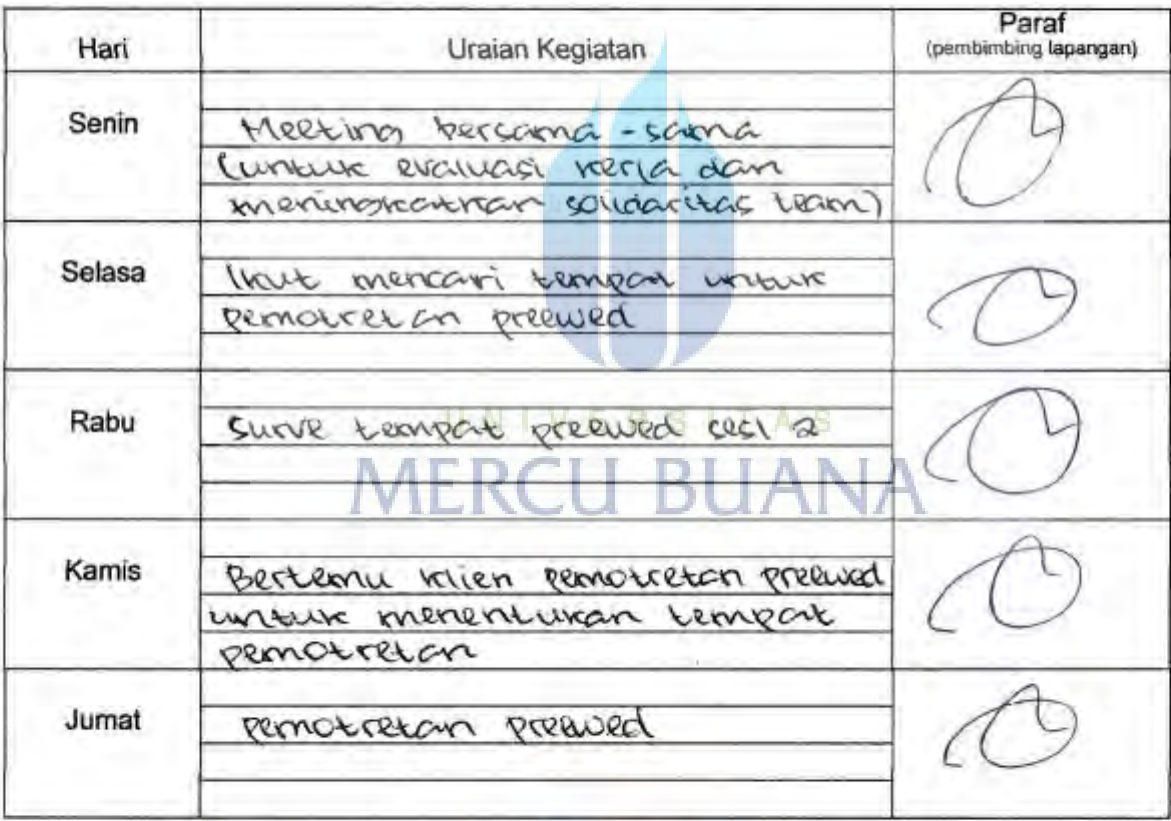 Hari Uraian Kegiatan Paraf
(pembimbing lapangan)
Senin
Meeting bersama - sama
(untuk evaluasi kerja dan
meningkatkan solidaritas team)
Selasa
Ikut mencari tempat untuk
pemotretan preewed
Rabu
Surve tempat preewed sesi 2
UNIVERSITAS
MERCU BUANA
Kamis
Bertemu klien pemotretan preewed
untuk menentukan tempat
pemotretan
Jumat
pemotretan preewed